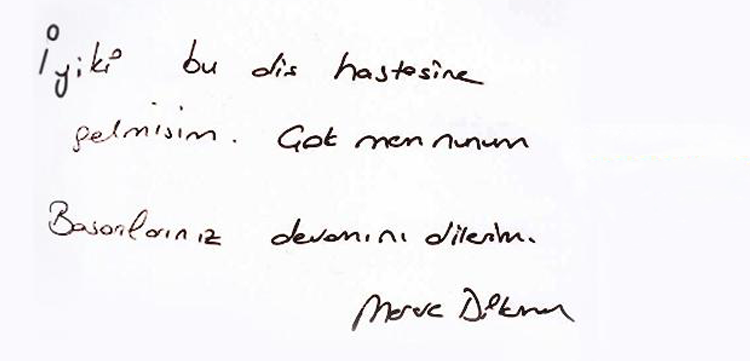 İyiki bu dis hastesine
gelmisim. Çok memnunum
Basarılarınız devamını dilerim.
Merve Dikmen